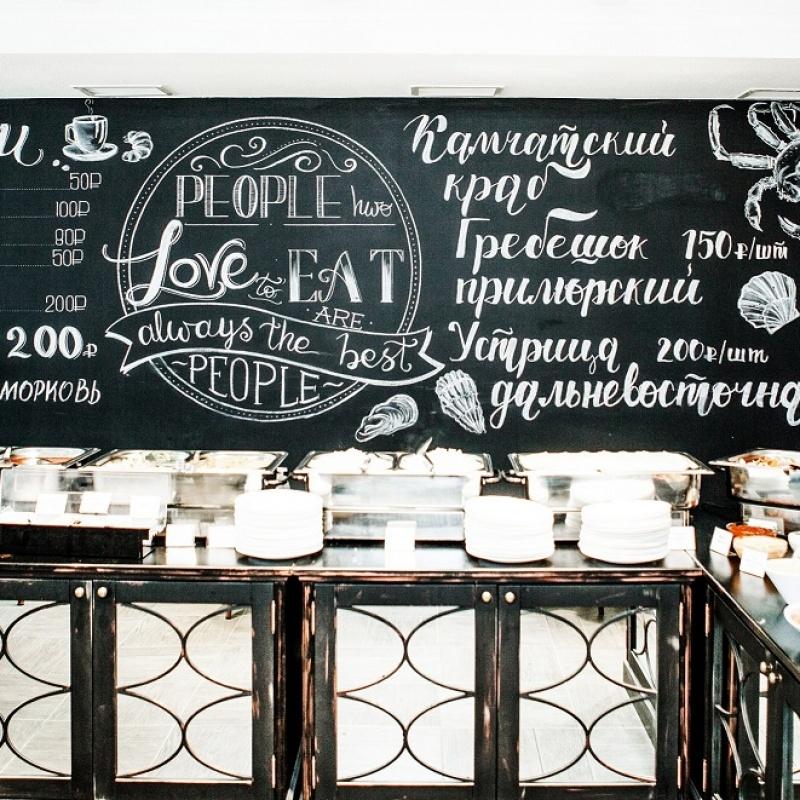 50₽
100₽
80₽
50₽
200₽
200₽
МОРКОВЬ
PEOPLE hwo
Love to EAT
ARE
always the best
PEOPLE
Камчатский
краб
Гребешок 150₽/шт
приморский
Устрица 200₽/шт
дальневосточна